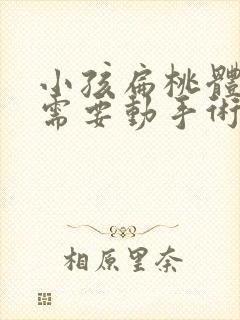 小孩扁桃體
需要動手術
相原里奈